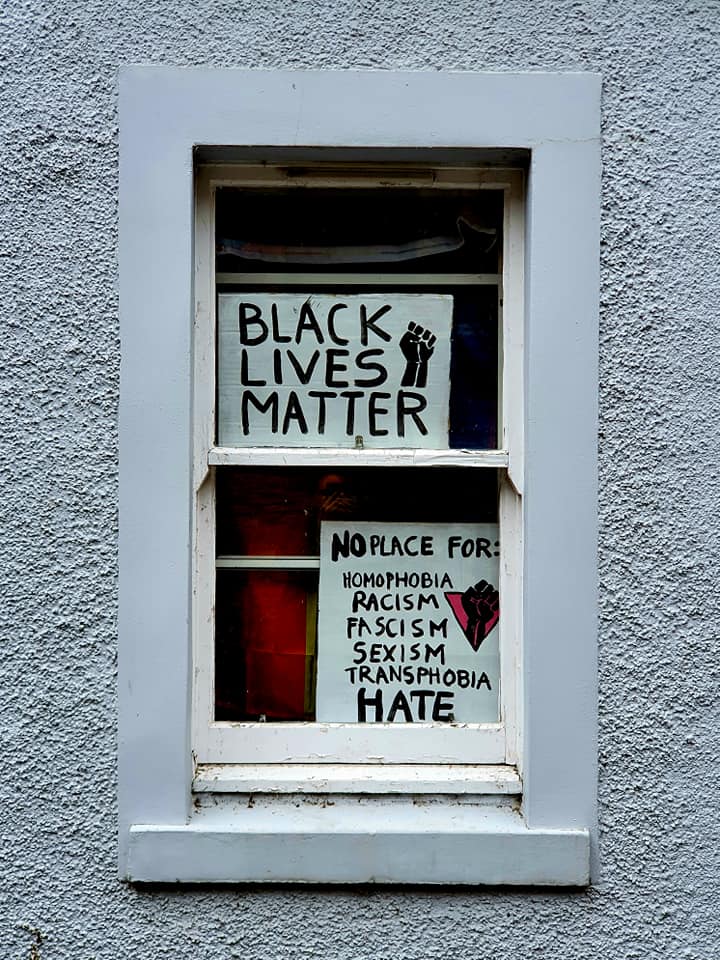 BLACK
LIVES
MATTER
NO PLACE FOR:
HOMOPHOBIA
RACISM
FASCISM
SEXISM
TRANSPHOBIA
HATE